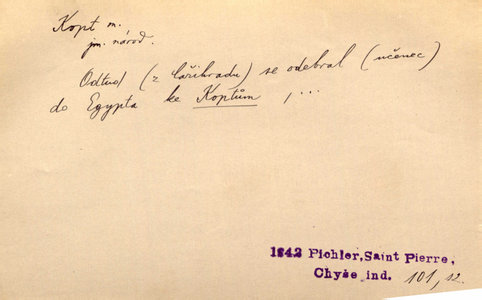 Kopt m.
jm. národ.
Odtud (z Cařihradu) se odebral (učenec)
do Egypta ke Koptům, ...
1842 Pichler, Saint Pierre,
Chyše ind. 101, 12.